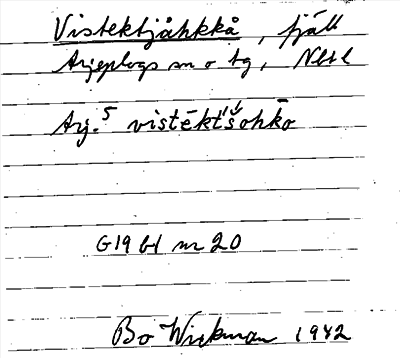 Vistektjåhkkå, fjäll
Arjeplogs sn o tg, Nbtl
Arj.⁵ vistēktˈšohkō
G19 bl nr 20
Bo Wickman 1942